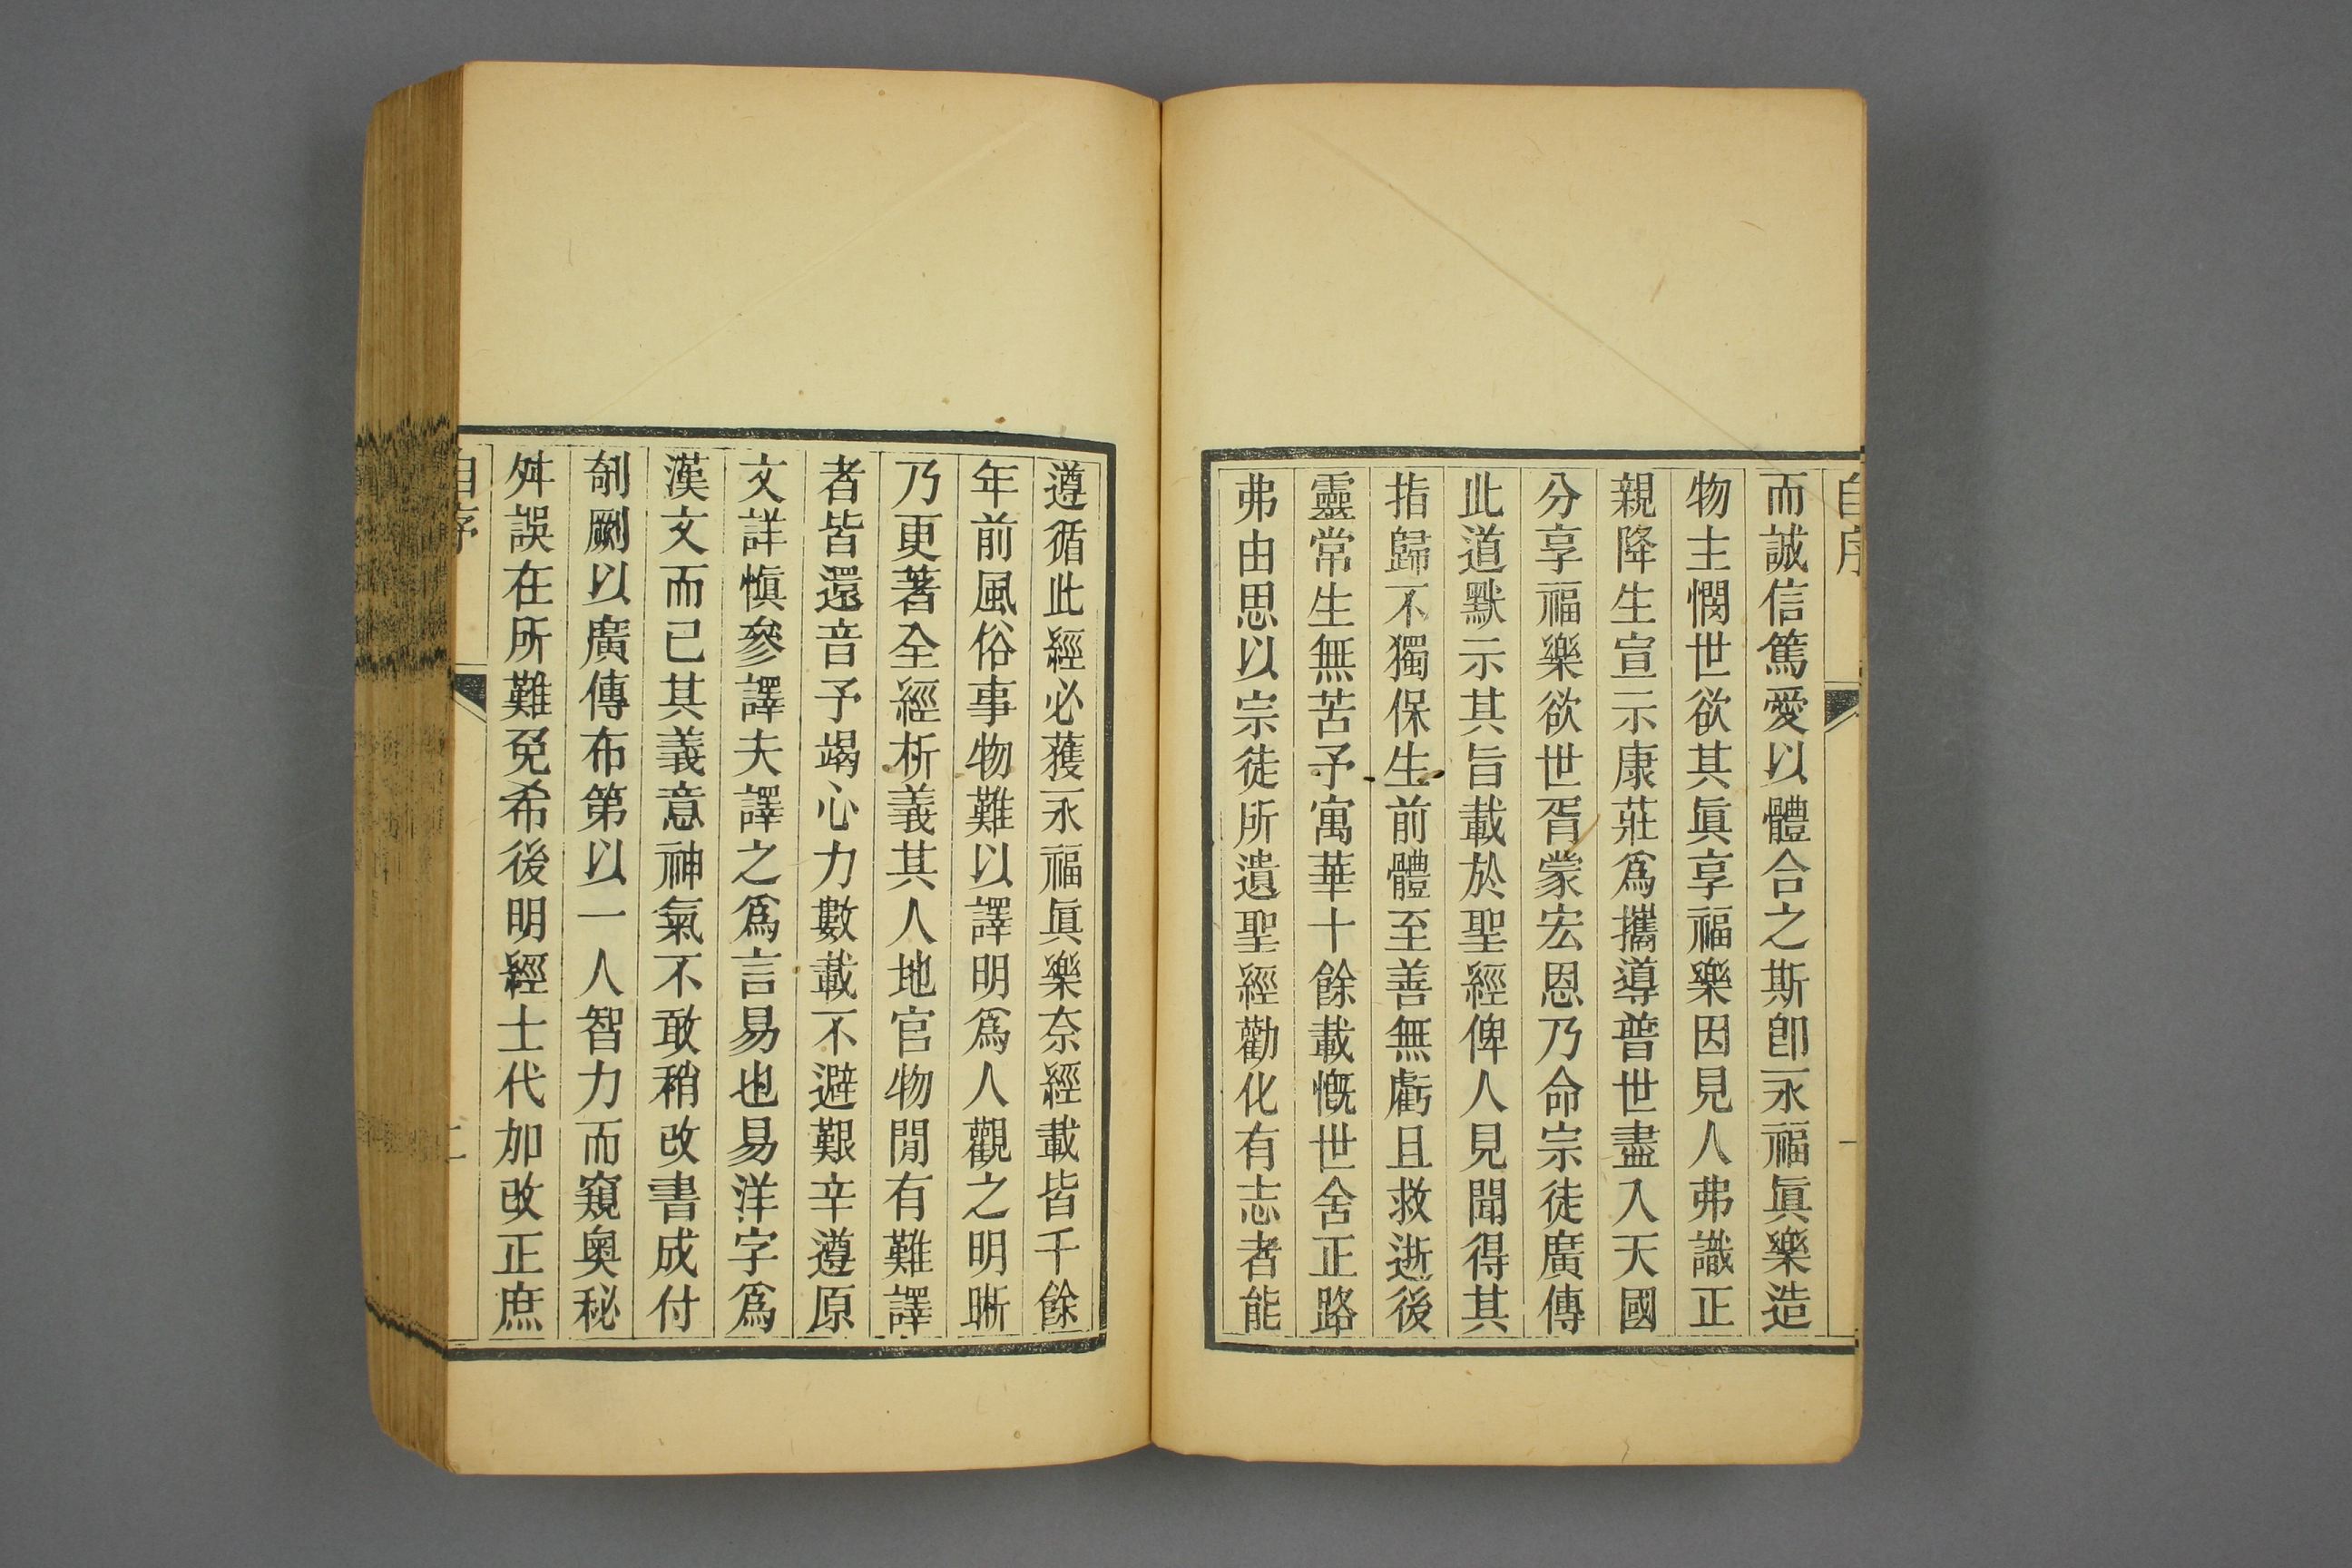 自序
一
而誠信篤愛以體合之斯卽永福眞樂造
物主憫世欲其眞享福樂因見人弗識正
親降生宣示康莊爲攜導普世盡入天國
分享福樂欲世胥蒙宏恩乃命宗徒廣傳
此道默示其旨載於聖經俾人見聞得其
指歸不獨保生前體至善無虧且救逝後
靈常生無苦予寓華十餘載慨世舍正路
弗由思以宗徒所遺聖經勸化有志者能
遵循此經必獲永福眞樂奈經載皆千餘
年前風俗事物難以譯明爲人觀之明晰
乃更著全經析義其人地官物閒有難譯
者皆還音予竭心力數載不避艱辛遵原
文詳愼參譯夫譯之爲言易也易洋字爲
漢文而已其義意神氣不敢稍改書成付
剞劂以廣傳布第以一人智力而窺奧秘
舛誤在所難免希後明經士代加改正庶
自序
二